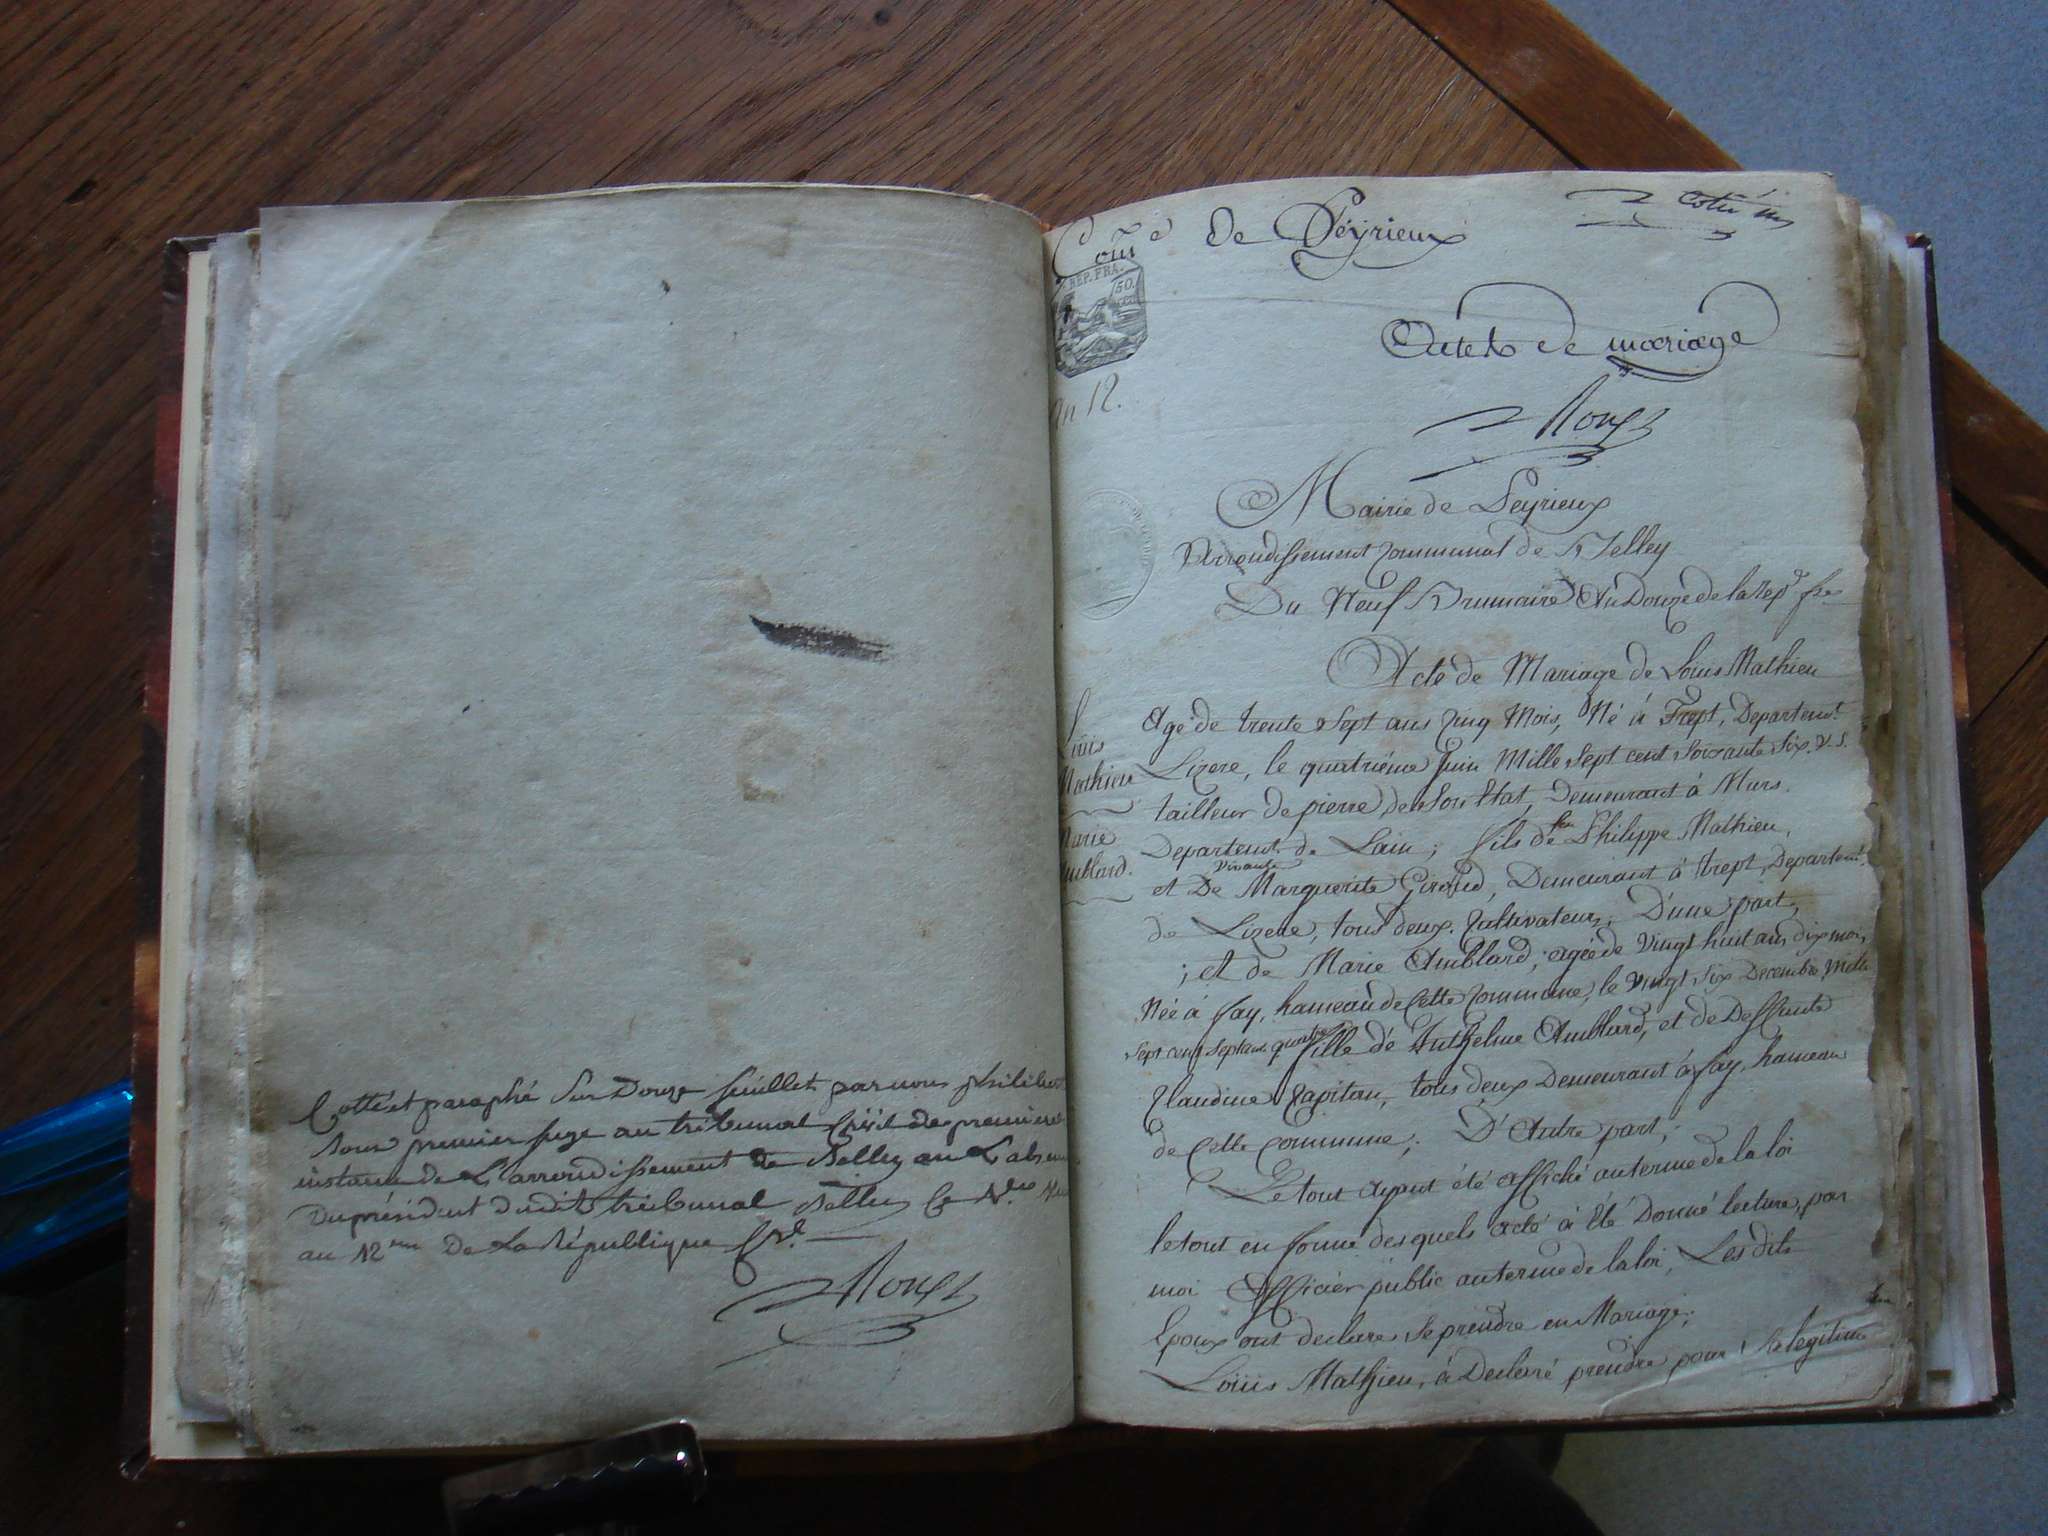 Cotté et paraphé Sur Douze feuillets par nous philibert
Roux premier juge au tribunal Civil de premiere
instance de L'arrondissement de Belley en L'absence
Du président dudit tribunal Belley le
an 12eme De La République fse
Roux
de Peyrieux
Cotté
REP. FRA.
50.
Actes de mariage
an 12.
Roux
Mairie de Peyrieux
Arrondissement Communal de Belley
Du Neuf Brumaire An Douze de la Repe fse
Acte de Mariage de Louis Mathieu
Louis
Mathieu
Marie
Amblard.
Agé de trente Sept ans Cinq Mois, Né à Trept, Departemt
Lizere, le quatriéme Juin Mille Sept cent Soixante Six. V. S.
tailleur de pierre, de Son Etat, Demeurant à Murs.
Departemt de Lain; fils de feu Philippe Mathieu,
et De vivante Marguerite Giroud, Demeurant à trept, Departemt
de Lizere, tous deux Cultivateurs; D'une part,
; et de Marie Amblard; agée de Vingt huit ans dix mois,
Née à fay, hameau de Cette Commune, le Vingt Six Decembre Mille
Sept cent Septante quatre fille d'Anthelme Amblard, et de Deffunte
Claudine Capitan, tous deux Demeurant à fay, hameau
de Cette Commune; D'Autre part;
Le tout ayant été affiché au terme de la loi
le tout en forme des quels acte à Eté Donné lecture, par
moi Officier public au terme de la loi, Les dits
Epoux ont declaré Se prendre en Mariage;
Louis Mathieu, à Declaré prendre pour Sa legitime